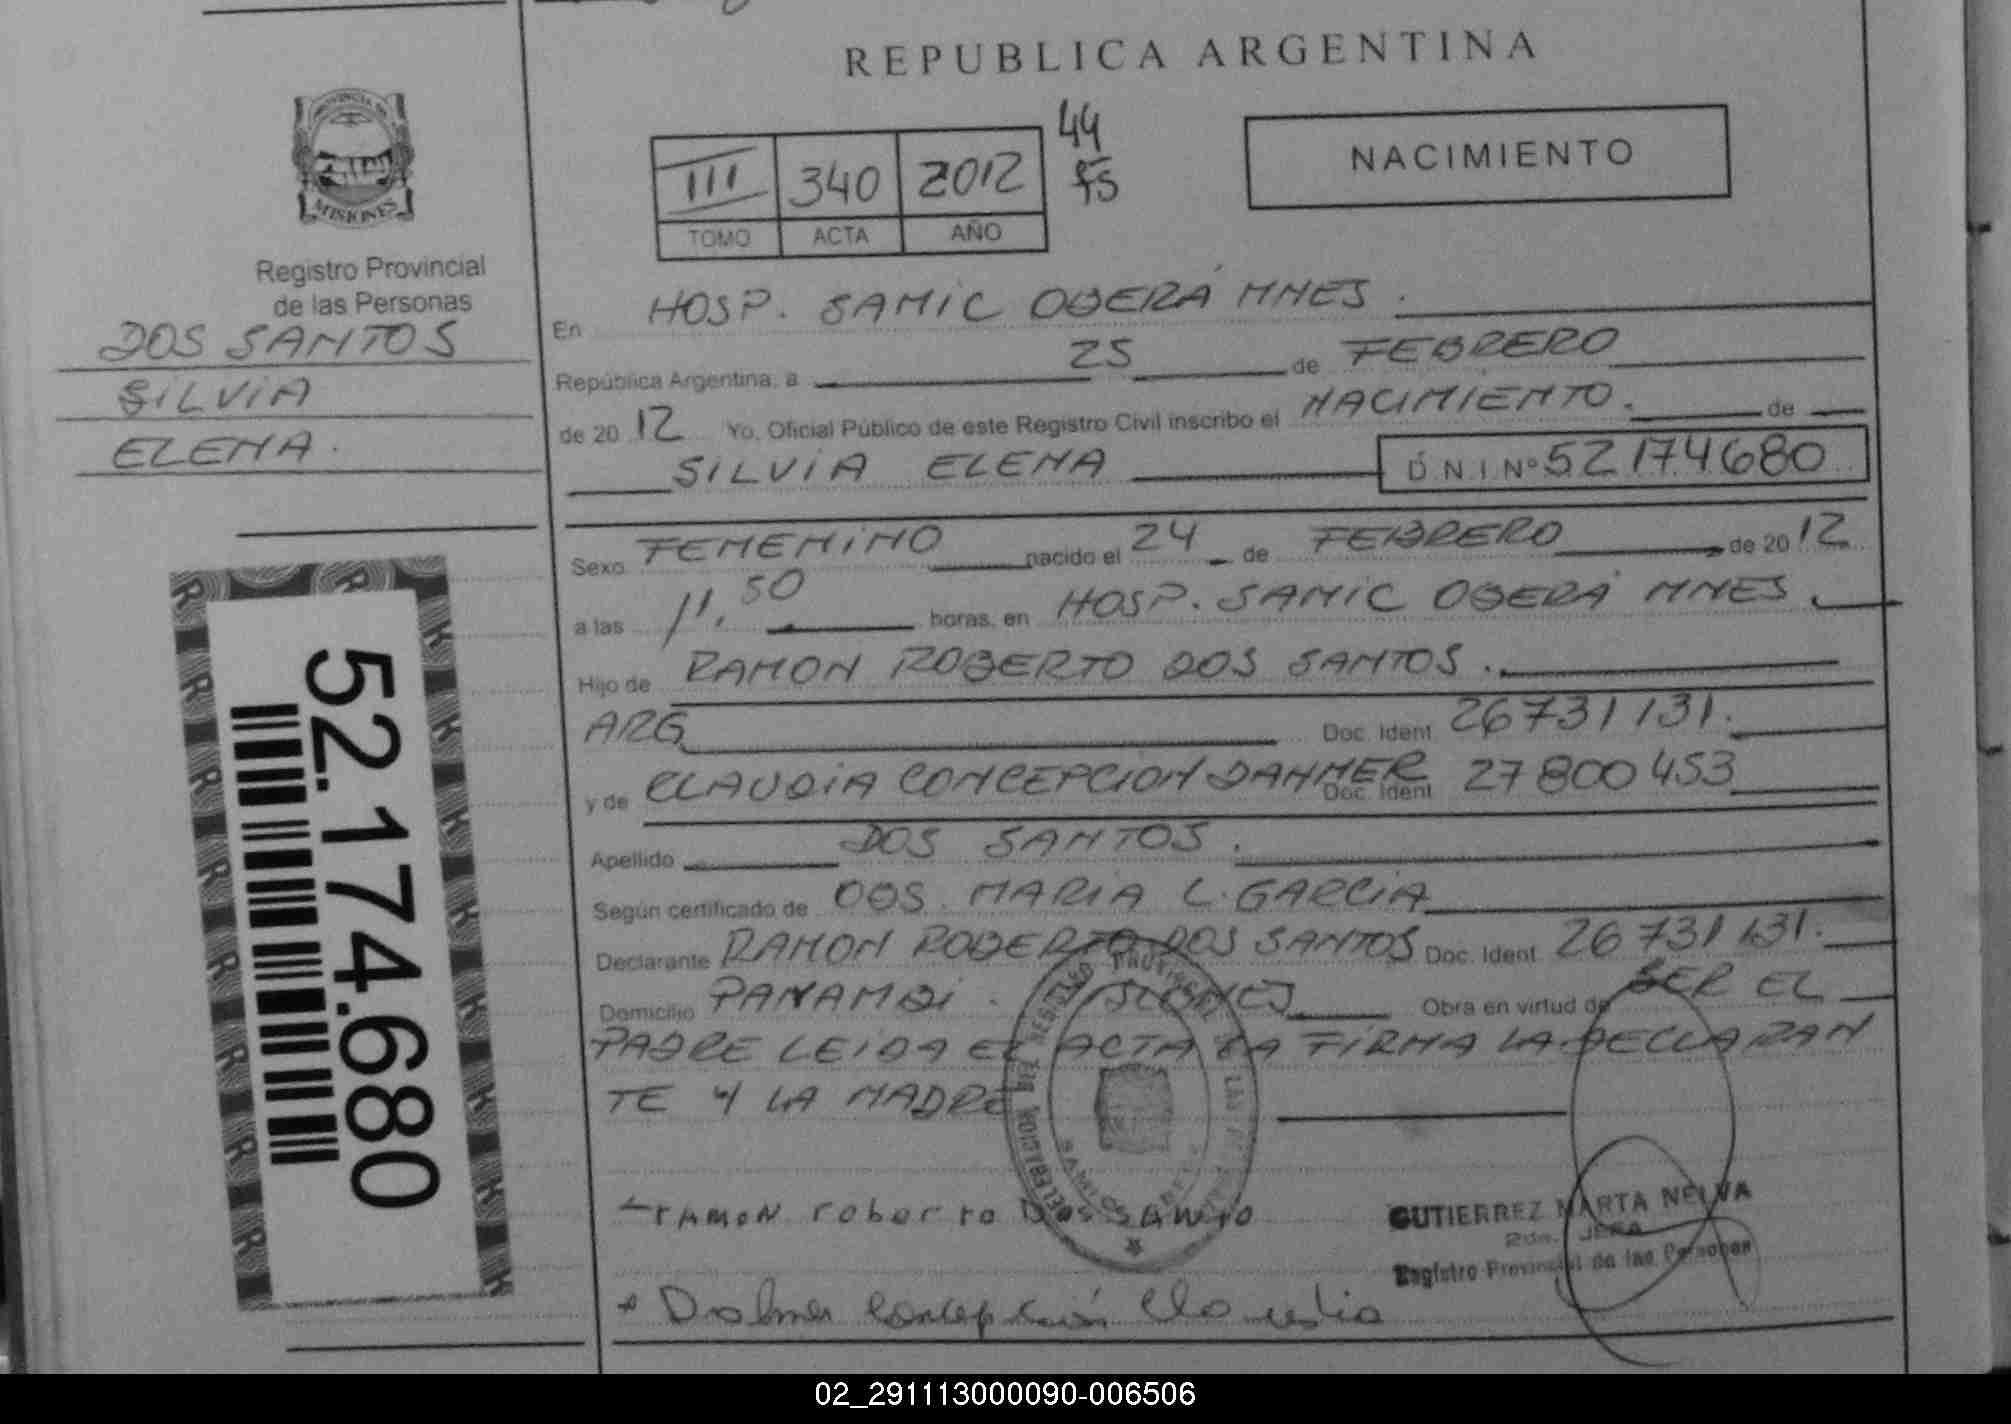 REPUBLICA ARGENTINA
PROVINCIA DE
MISIONES
Registro Provincial
de las Personas
DOS SANTOS
SILVIA
ELENA.
52.174.680
III 340 2012
TOMO ACTA AÑO
44
NACIMIENTO
En HOSP. SAMIC OBERÁ MNES.
República Argentina, a 25 de FEBRERO
de 2012 Yo, Oficial Público de este Registro Civil inscribo el NACIMIENTO. de
SILVIA ELENA D.N.I. Nº 52174680
Sexo FEMENINO nacido el 24 de FEBRERO de 2012
a las 11,50 horas, en HOSP. SAMIC OBERÁ MNES.
Hijo de RAMON ROBERTO DOS SANTOS.
ARG Doc. Ident 26731131.
y de CLAUDIA CONCEPCION DAHMER Doc. Ident 27800453
Apellido DOS SANTOS.
Según certificado de OBS. MARIA L. GARCIA
Declarante RAMON ROBERTO DOS SANTOS Doc. Ident 26731131.
Domicilio PANAMBI. Obra en virtud de SER EL
PADRE LEIDA EL ACTA LA FIRMA LA DECLARAN
TE Y LA MADRE
RAMON roberto DOS SANTO
GUTIERREZ MARTA NELVA
2da. JEFA
Registro Provincial de las Personas
Concepción Claudia
02_291113000090-006506